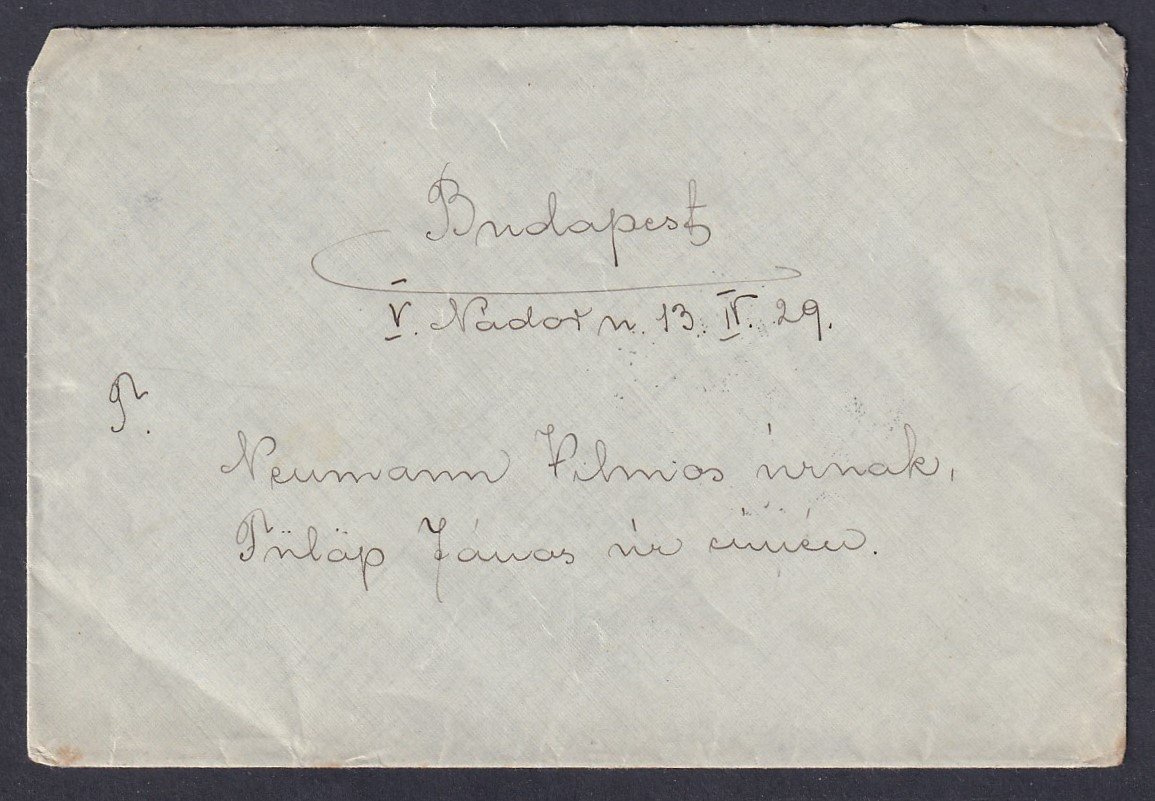 Budapest
V. Nador u. 13. IV. 29.
T.
Neumann Vilmos úrnak,
Fülöp János úr címén.